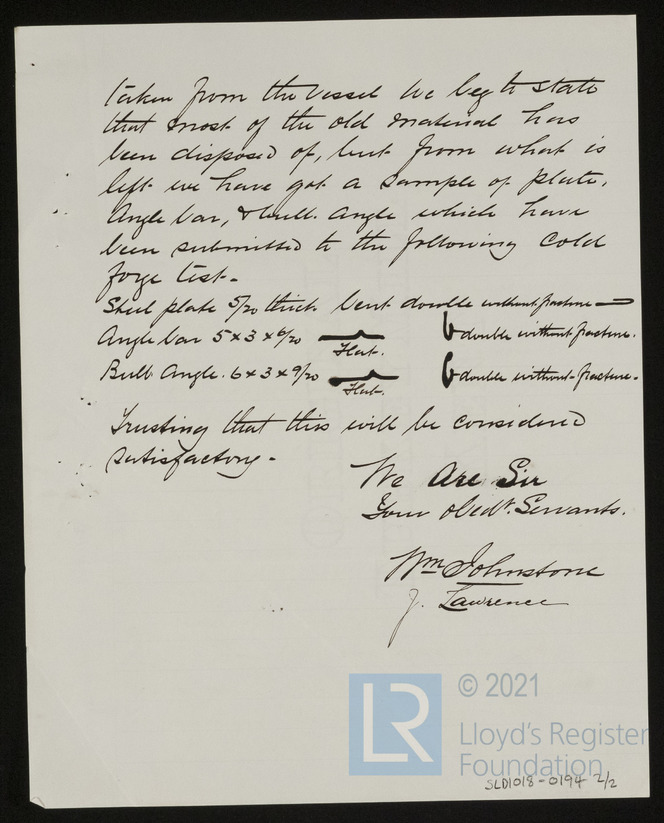 taken from the vessel we beg to state
that most of the old material has
been disposed of, but from what is
left we have got a sample of plate,
Angle bar, & bulb angle which have
been submitted to the following cold
forge test -
Shell plate 5/20 thick bent double without fracture
Angle bar 5 x 3 x 6/20 Flat. double without fracture.
Bulb Angle. 6 x 3 x 9/20 Flat. double without fracture.
Trusting that this will be considered
satisfactory -
We Are Sir
Your Obedt. Servants.
Wm Johnstone
J. Lawrence
LR
© 2021
Lloyd's Register
Foundation
SLD1018-0194 2/2